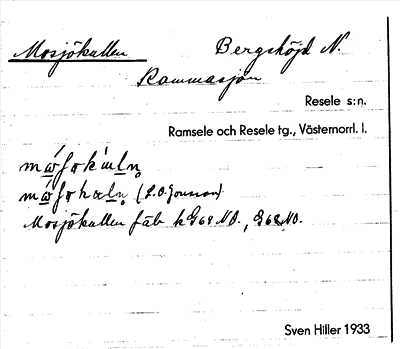 Mosjökullen Bergshöjd N.
Rammasjön
Resele s:n.
Ramsele och Resele tg., Västernorrl. l.
(L.O. Jonsson)
Mosjökullen fäb k G68 NO., G68 NO.
Sven Hiller 1933